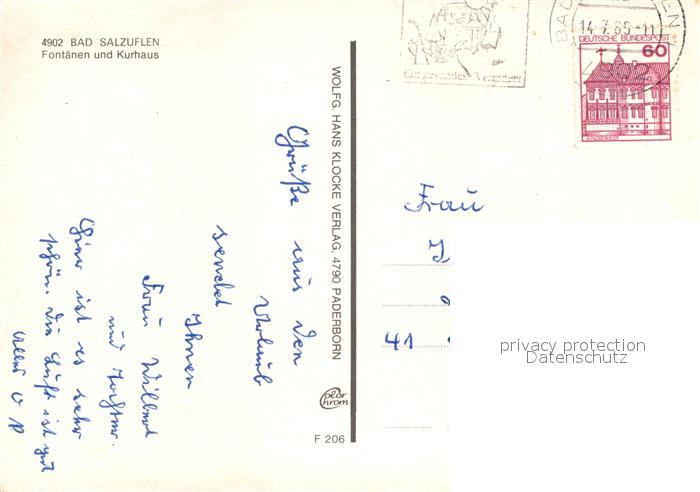 4902 BAD SALZUFLEN
Fontänen und Kurhaus
14.7.85-11
DEUTSCHE BUNDESPOST
60
WOLFG. HANS KLOCKE VERLAG, 4790 PADERBORN
Grüße aus den
Urlaub
sendet
Ihnen
Frau
und Tochter.
Hier ist es sehr
schön. Die Luft ist gut
Frau
41
privacy protection
Datenschutz
color
chrom
F 206